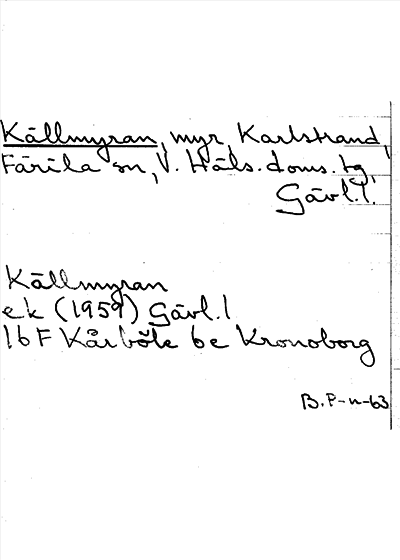 Källmyran, myr, Karlstrand,
Färila sn, V. Häls. doms. tg,
Gävl. l.
Källmyran
ek (1959) Gävl. l
16 F Kårböle 6 c Kronoborg
B. P-n-63